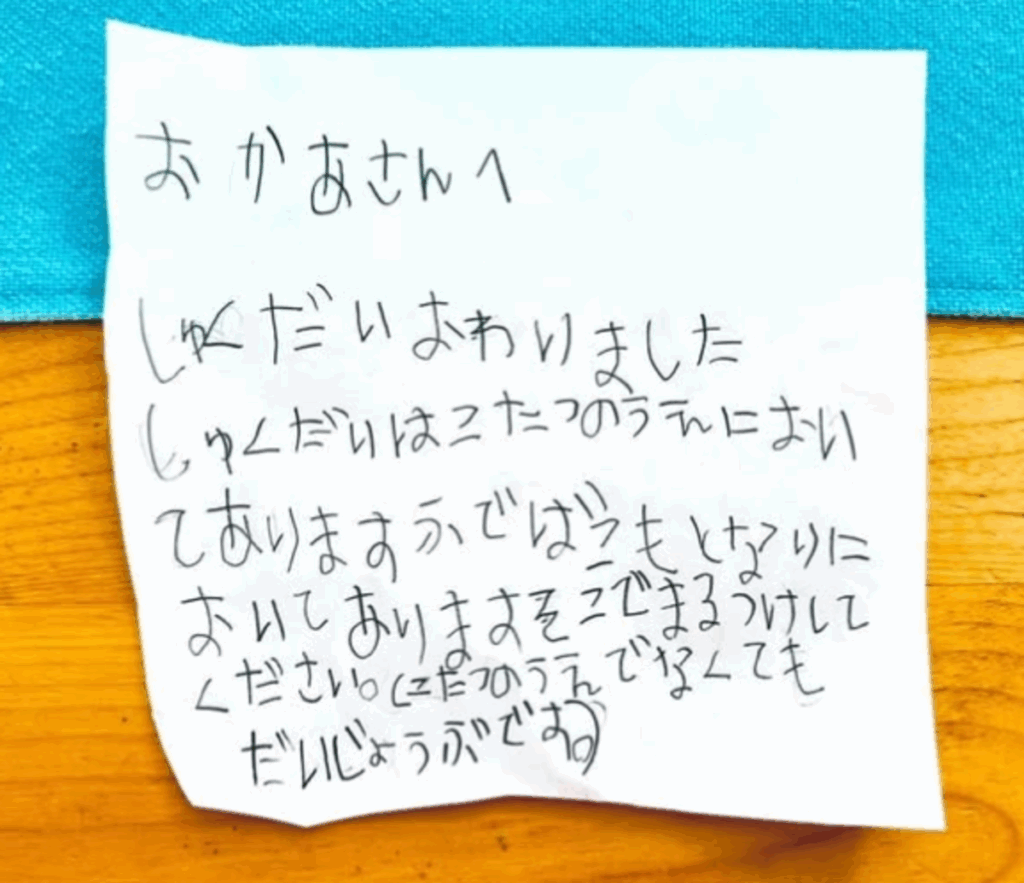 おかあさんへ
しゅくだいおわりました
しゅくだいはこたつのうえにおい
てありますふでばこもとなりに
おいてありますそこでまるつけして
ください。(こたつのうえでなくても
だいじょうぶです。)